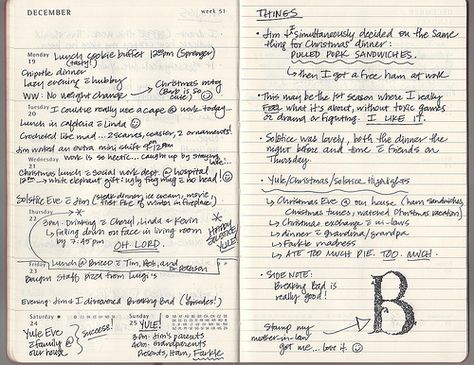 DECEMBER
week 51
Monday
19
Lunch cookie buffet 12pm (Springer)
(tasty!)
Chipotle dinner
Lazy evening c̄ hubby
WW: No weight change
→ Christmas mtng
(Barb is so cute)
Tuesday
20
I could really use a cape @ work today...
Lunch in cafeteria c̄ Linda
Crocheted like mad... 2 scarves, coaster, 2 ornaments!
Jim worked an extra mini shift
Wednesday
21
work is so hectic... caught up by staying
Christmas lunch c̄ social work dept. @ hospital
12pm → white elephant gift: ugly mug and no head!
Solstice Eve c̄ Jim (steak dinner, ice cream, movie,
first fire of winter in fireplace)
Thursday
22
3pm - Drinking c̄ Cheryl, Linda & Kevin
↳ falling down on face in living room
by 7:45 pm
OH LORD.
HAPPY
SOLSTICE
YULE!
Friday
23
Lunch @ Brized c̄ Tim, Deb, and
Dr. Peterson
Bought staff pizza from Luigi's
Evening: Jim & I discovered Breaking Bad (4 episodes!)
Saturday
24
Yule Eve
c̄ family @
our house
SUCCESS!
Sunday
25
YULE!
2pm: Jim's parents
4pm: Grandparents
Presents, Ham, Farkle
THINGS
• Jim & I simultaneously decided on the same
thing for Christmas dinner:
PULLED PORK SANDWICHES.
↳ then I got a free ham at work
• This may be the 1st season where I really
FEEL what it's about, without toxic games
or drama or fighting. I LIKE IT.
• Solstice was lovely, both the dinner the
night before and time c̄ friends on
Thursday
• Yule/Christmas/Solstice Highlights
↳ Christmas Eve @ our house (ham sandwiches,
Christmas tunes, watched Christmas Vacation)
↳ Christmas exchange c̄ in-laws
↳ dinner c̄ grandma/grandpa
↳ Farkle madness
↳ ATE TOO MUCH PIE. TOO. MUCH.
• SIDE NOTE:
Breaking Bad is
really good!
B
Stamp my
mother-in-law
got me... love it.